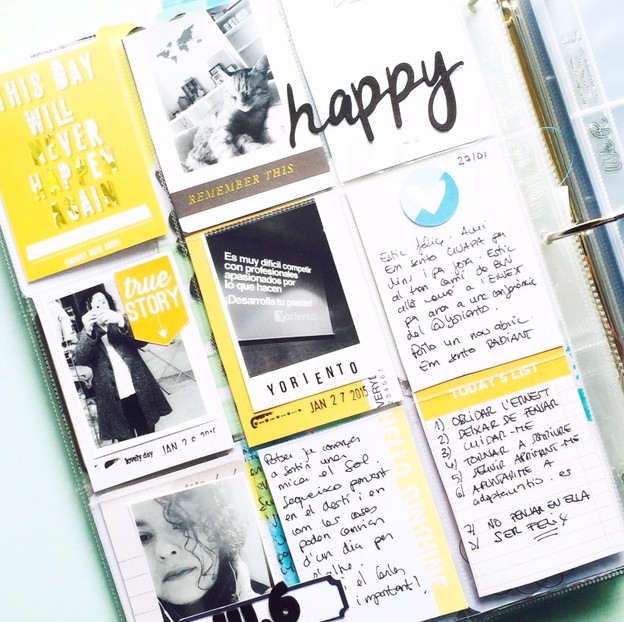 THIS DAY
WILL
NEVER
HAPPEN
AGAIN
REMEMBER THIS
happy
true
STORY
lovely day JAN 2 6 2015
Es muy difícil competir
con profesionales
apasionados por
lo que hacen
¡Desarrolla tu pasión!
yoriento
YORIENTO
JAN 27 2015
VERY
27/01
Estic feliç. Avui
Em sento GUAPA per
dins i per fora. Estic
al tren camí de BCN
allà
a l'ERNEST
per anar a una conferència
del @yoriento.
Porto un nou abric.
Em sento RADIANT
TODAY'S LIST
1) OBLIDAR L'ERNEST
2) DEIXAR DE FUMAR
3) CUIDAR-ME
4) TORNAR A CONDUIR
5) SEGUIR APRIMANT-ME
6) APUNTARME A
adoptauntio.es
7) NO PENSAR EN ELLA
8) SER FELIÇ
Potser ja comença
a sortir una
mica el Sol.
Segueixo pensant
en el destí i en
com les coses
poden canviar
d'un dia per
l'altre
i el Carles
important!
HELLO SUNSHINE